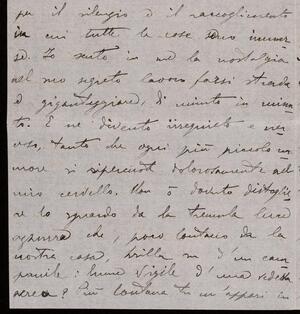 per il silenzio e il raccoglimento
in cui tutte le cose sono immer-
se. Io sento in me la nostalgia
nel suo segreto lavoro farsi strada
e giganteggiare, di minuto in minu-
to. E ne divento irrequieto e ner-
voso, tanto che ogni più piccolo ru-
more si ripercuote dolorosamente nel
mio cervello. Non ò dovuto distoglie-
re lo sguardo da la tremula luce
che, poco lontano da la
nostra casa, brilla su d'un cam-
panile: lume vigile d'una vedetta
aerea? Più lontana tu m'appari in